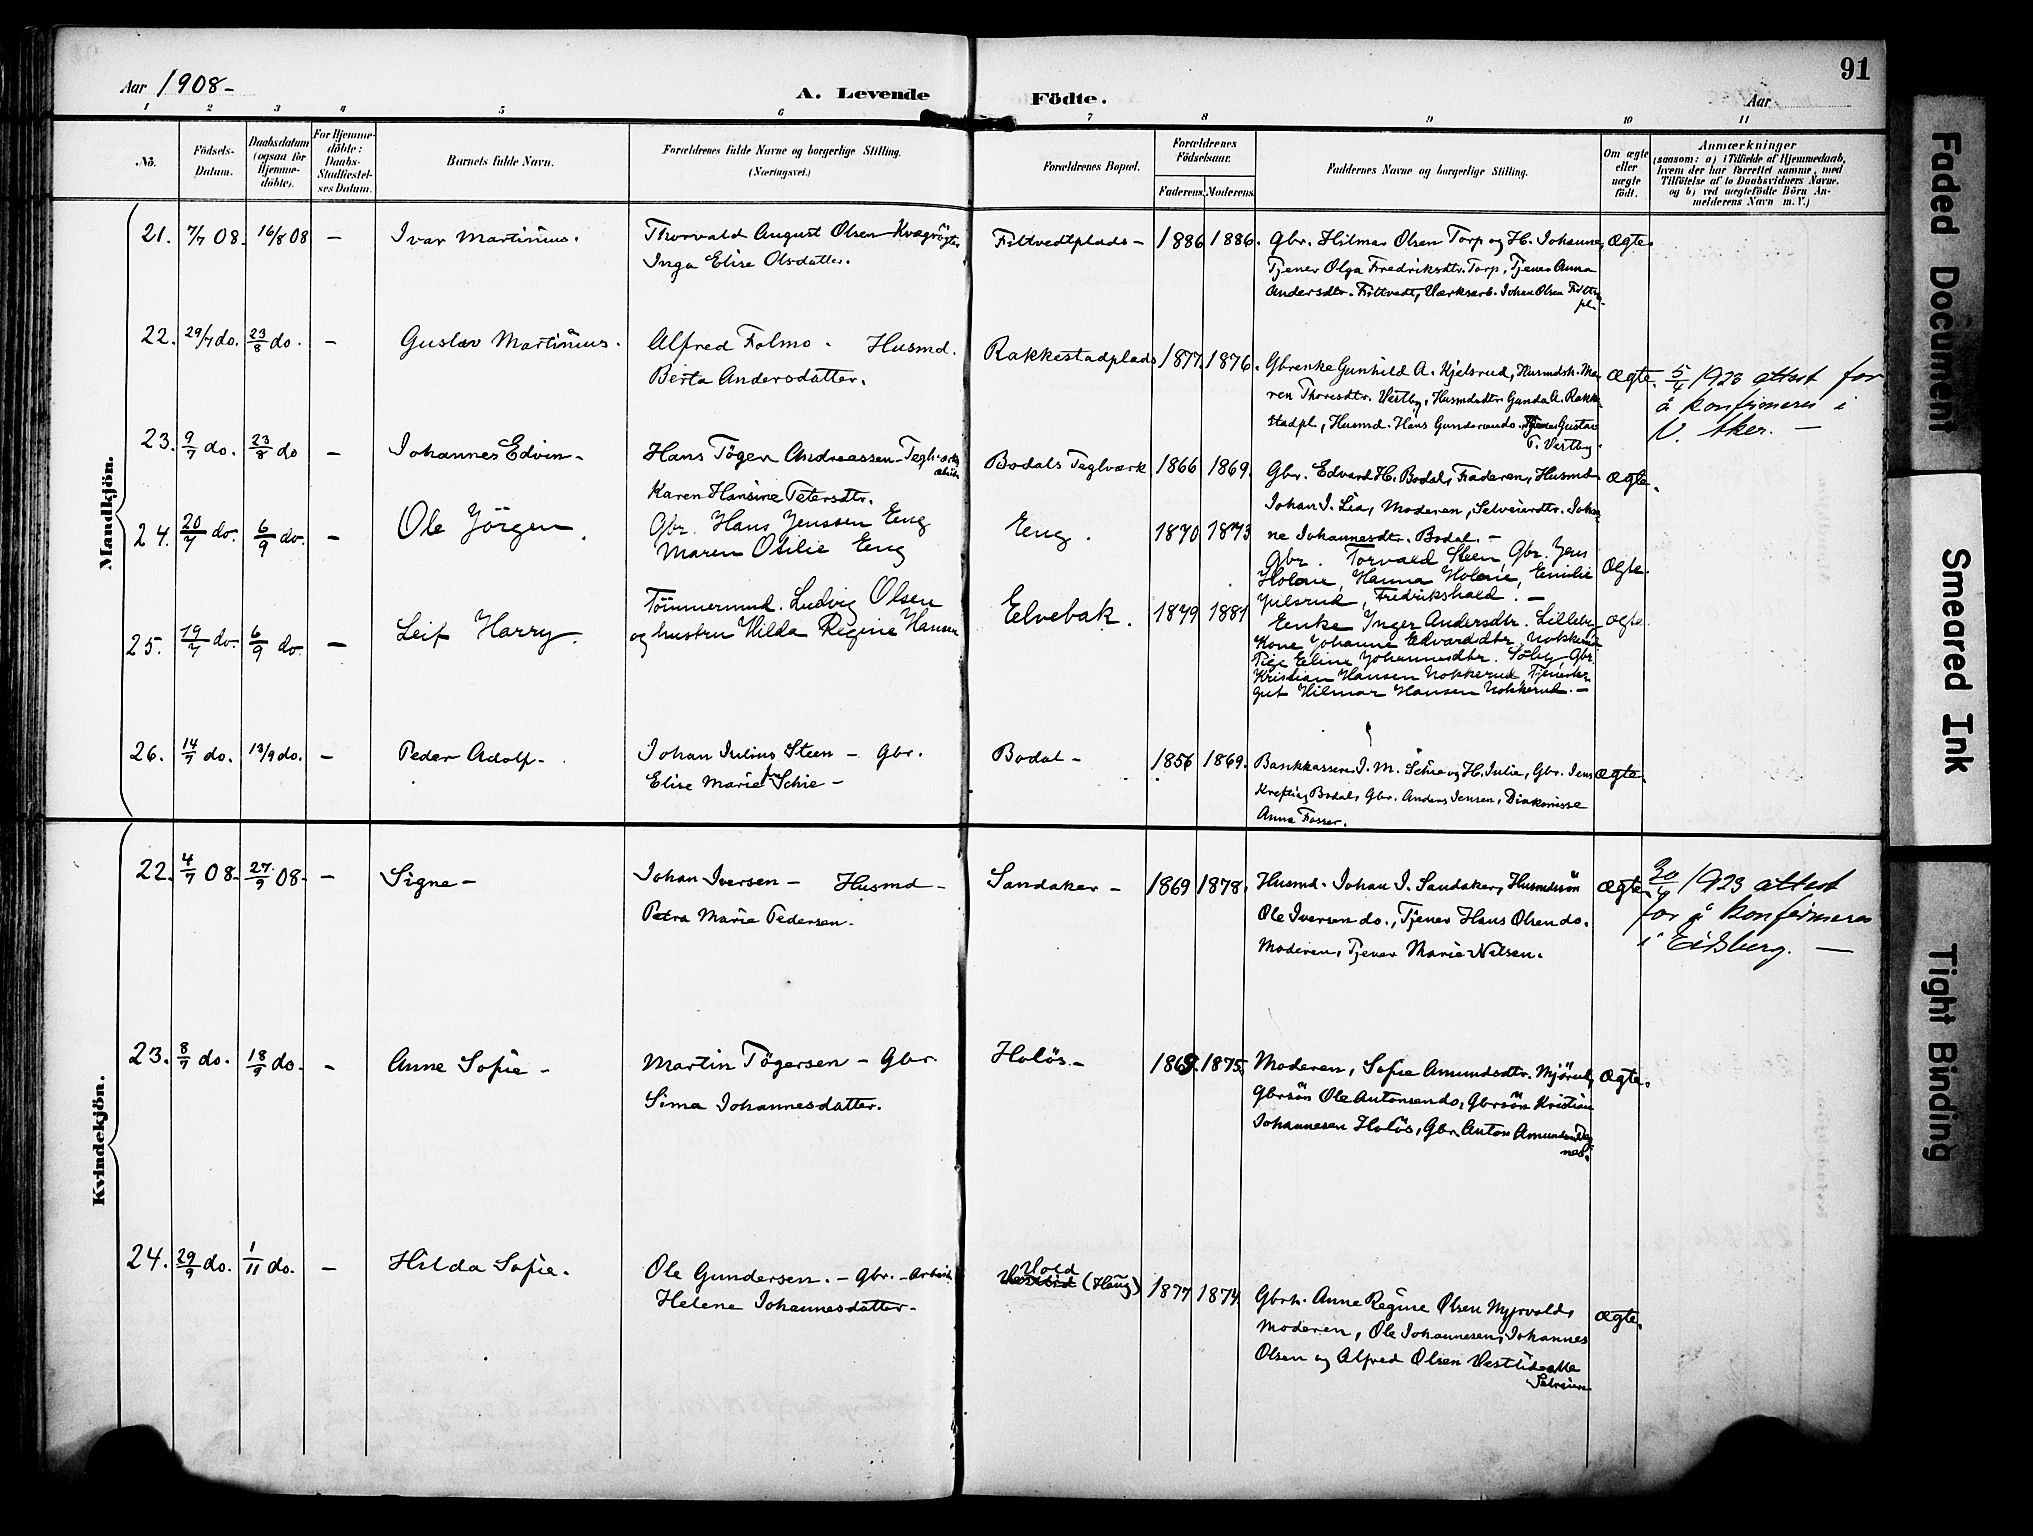 91
Aar 1908-
A. Levende Födte.
Aar
1 2 3 4 5 6 7 8 9 10 11
No.
Födsels-Datum.
Daabsdatum (ogsaa for Hjemme-döbte).
For Hjemme-döbte: Daabs-Stadfæstel-ses Datum.
Barnets fulde Navn.
Forældrenes fulde Navne og borgerlige Stilling.
(Næringsvei.)
Forældrenes Bopæl.
Forældrenes Födselsaar.
Faderens. Moderens.
Faddernes Navne og borgerlige Stilling.
Om ægte eller uægte födt.
Anmærkninger
(saasom: a) i Tilfælde af Hjemmedaab, hvem der har forrettet samme, med Tilföielse af to Daabsvidners Navne, og b) ved uægtefödte Börn An-melderens Navn m. V.)
Mandkjön.
21. 7/7 08. 16/8 08 - Ivar Martinius. Thorvald August Olsen - Kvægrögter
Inga Elise Olsdatter.
Filtvedtplads - 1886 1886. Gbr. Hilmar Olsen Torp og H. Johanne, Ægte.
Tjener Olga Fredriksdtr. Torp, Tjener Anna
Andersdtr. Filtvedt, Værksarb. Johan Olsen
22. 29/7 do. 23/8 do. - Gustav Martinius. Alfred Folmo. Husmd.
Berta Andersdatter.
Rakkestadplads 1877. 1876. Gbrenke Gunhild A. Kjelsrud, Husmdsk. Ma-
ren Thoresdtr. Vestby, Husmdsdtr. Gunda A. Rakke-
stadpl., Husmd. Hans Gundersen do. Tjener Gustav
T. Vestby.
Ægte. 5/4 1923 attest for
å konfirmeres i
V. Aker. -
23. 9/7 do. 23/8 do - Johannes Edvin - Hans Töger Andreassen - Teglverks
arbeid.
Karen Hansine Petersdtr.
Bodals Teglværk 1866 1869. Gbr. Edvard H. Bodal, Faderen, Husmd
Johan J. Lia, Moderen, Selveierdtr. Johan-
ne Johannesdtr. Bodal. -
Ægte.
24. 20/7 do. 6/9 do. - Ole Jörgen. Gbr. Hans Jenssen Eng
Maren Otilie Eng
Eng. 1870 1873
Gbr. Torvald Steen, Gbr. Jens
Holene, Hanna Holene, Emilie
Jilsrud, Fredrikshald. -
Ægte.
25. 19/7 do. 6/9 do. - Leif Harry. Tömmermnd. Ludvig Olsen
og hustru Hilda Regine Hansen
Elvebak. 1879 1881 Enke Inger Andersdtr. Lilleby
Kone Johanne Edvardsdtr Nokkerud
Pige Eline Johannesdtr. Söby Gbr.
Kristian Hansen Nokkerud Tjeneste-
gut Hilmar Hansen Nokkerud. -
Ægte.
26. 14/7 do. 13/9 do. - Peder Adolf - Johan Julius Steen - Gbr.
Elise Marie Schie -
Bodal - 1856 1869. Bankkasserer J. M. Schie og H. Julia, Gbr. Jens
Krefting Bodal, Gbr. Anders Jensen, Diakonisse
Anna Fosser.
Ægte.
Kvindekjön.
22. 4/7 08. 27/9 08. - Signe - Johan Iversen - Husmd -
Petra Marie Pedersen.
Sandaker - 1869 1878. Husmd. Johan J. Sandaker, Husmdssön
Ole Iversen do., Tjener Hans Olsen do.
Moderen, Tjener Marie Nilsen.
Ægte. 30/4 1923 attest
for å konfirmeres
i Eidsberg. -
23. 8/7 do. 18/9 do. - Anne Sofie - Martin Tögersen - Gbr.
Sima Johannesdatter.
Holös - 1869. 1875. Moderen, Sofie Amundsdtr. Mjörud,
Gbrsön Ole Antonsen do, Gbrsön Kristian
Johannesen Holös, Gbr. Anton Amundsen
Ægte.
24. 29/9 do. 1/11 do. - Hilda Sofie. Ole Gundersen. - Gbr. - Arbeid.
Helene Johannesdatter -
Vold
Vestlid (Haug)
1877 1874. Gbrh. Anne Regine Olsen Myrvold,
Moderen, Ole Johannesen, Johannes
Olsen og Alfred Olsen Vestlid alle
Selveiere
Ægte.
Faded Document
Smeared Ink
Tight Binding